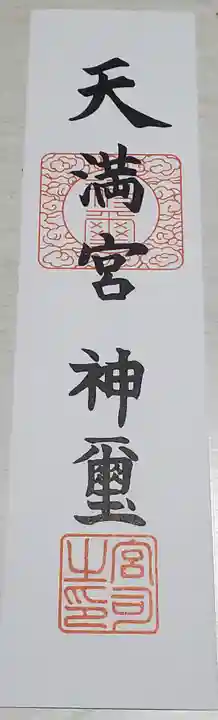 天満宮 神璽
宮司
之印